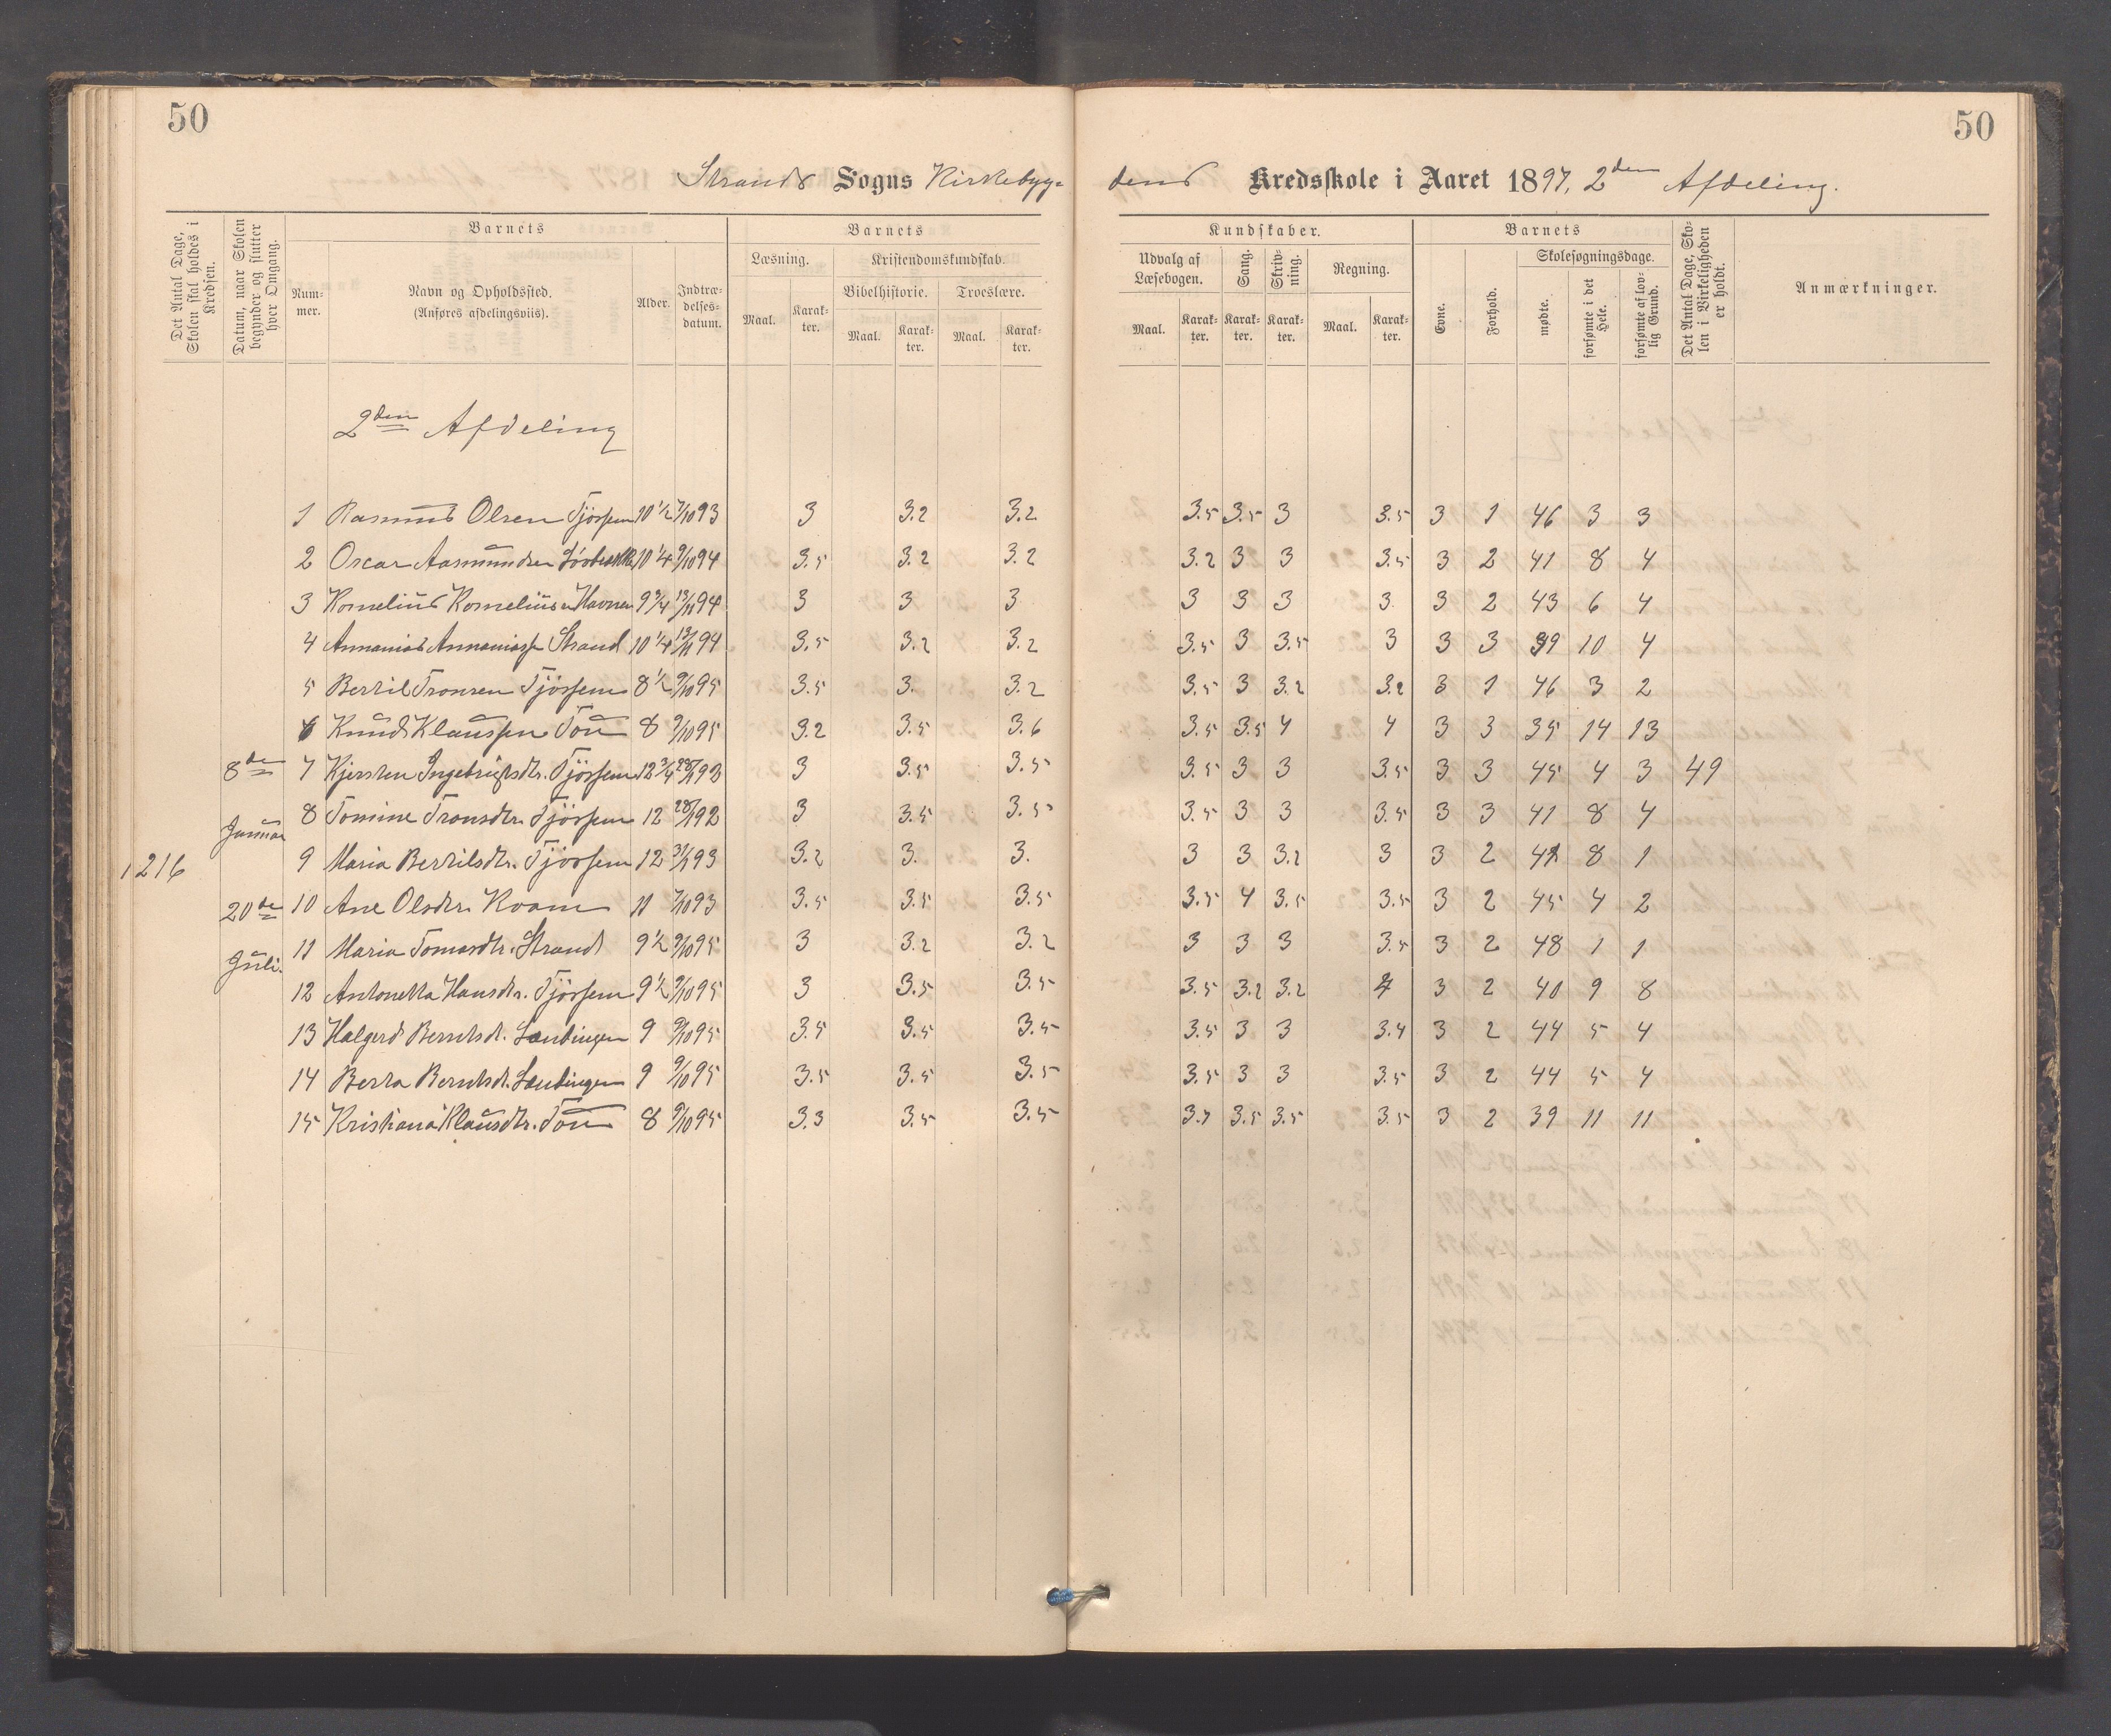 50
50
Strands Sogns Kirkebyg= dens Kredsskole i Aaret 1897, 2den Afdeling.
Det Antal Dage, Skolen skal holdes i Kredsen.
Datum, naar Skolen begynder og slutter hver Omgang.
Barnets
Barnets
Kundskaber.
Barnets
Nummer.
Navn og Opholdssted.
(Anføres afdelingsviis).
Alder.
Indtrædelsesdatum.
Læsning.
Kristendomskundskab.
Bibelhistorie.
Troeslære.
Maal.
Karakter.
Maal.
Karakter.
Maal.
Karakter.
Udvalg af Læsebogen.
Sang.
Skrivning.
Regning.
Maal.
Karakter.
Karakter.
Karakter.
Maal.
Karakter.
Evne.
Forhold.
Skolesøgningsdage.
mødte.
forsømte i det Hele.
forsømte af lovlig Grund.
Det Antal Dage, Skolen i Virkeligheden er holdt.
Anmærkninger.
2den Afdeling
1 Rasmus Olsen Tjössem 10 1/2 7/10 93 3 3.2 3.2 3.5 3.5 3 3.5 3 1 46 3 3
2 Oscar Aasmundsen 10 1/4 9/10 94 3.5 3.2 3.2 3.2 3 3 3.5 3 2 41 8 4
3 Kornelius Korneliusen Havnen 9 3/4 94 3 3 3 3 3 3 3 3 2 43 6 4
4 Annanias Annaniasse Strand 10 1/4 94 3.5 3.2 3.2 3.5 3 3.5 3 3 3 39 10 4
5 Bertil Tronsen Tjössem 8 1/2 9/10 95 3.5 3. 3.2 3.5 3 3.2 3.2 3 1 46 3 2
6 Knud Klaussen Tou 8 9/10 95 3.2 3.5 3.6 3.5 3.5 4 4 3 3 35 14 13
8de 7 Kjersten Ingebrigtsdtr. Tjössem 12 3/4 3 3.5 3.5 3.5 3 3 3.5 3 3 45 4 3 49
Januar 8 Tomine Tronsdtr. Tjössem 12 92 3 3.5 3.5 3.5 3 3 3.5 3 3 41 8 4
1216 9 Maria Bertilsdtr. Tjössem 12 93 3.2 3. 3. 3 3 3.2 3 3 2 41 8 1
20de 10 Ane Olsdtr. Kvam 11 7/10 93 3.5 3.5 3.5 3.5 4 3.5 3.5 3 2 45 4 2
Juli. 11 Maria Tomasdtr. Strand 9 1/2 9/10 95 3 3.2 3.2 3 3 3 3.5 3 2 48 1 1
12 Antonetta Hansdtr. Tjössem 9 1/2 9/10 95 3 3.5 3.5 3.5 3.2 3.2 4 3 2 40 9 8
13 Halgerd Berntsdt. 9 9/10 95 3.5 3.5 3.5 3.5 3 3 3.4 3 2 44 5 4
14 Berta Berntsdt. 9 9/10 95 3.5 3.5 3.5 3.5 3 3 3.5 3 2 44 5 4
15 Kristiana Klausdtr. Tou 8 9/10 95 3.3 3.5 3.5 3.7 3.5 3.5 3.5 3 2 39 11 11